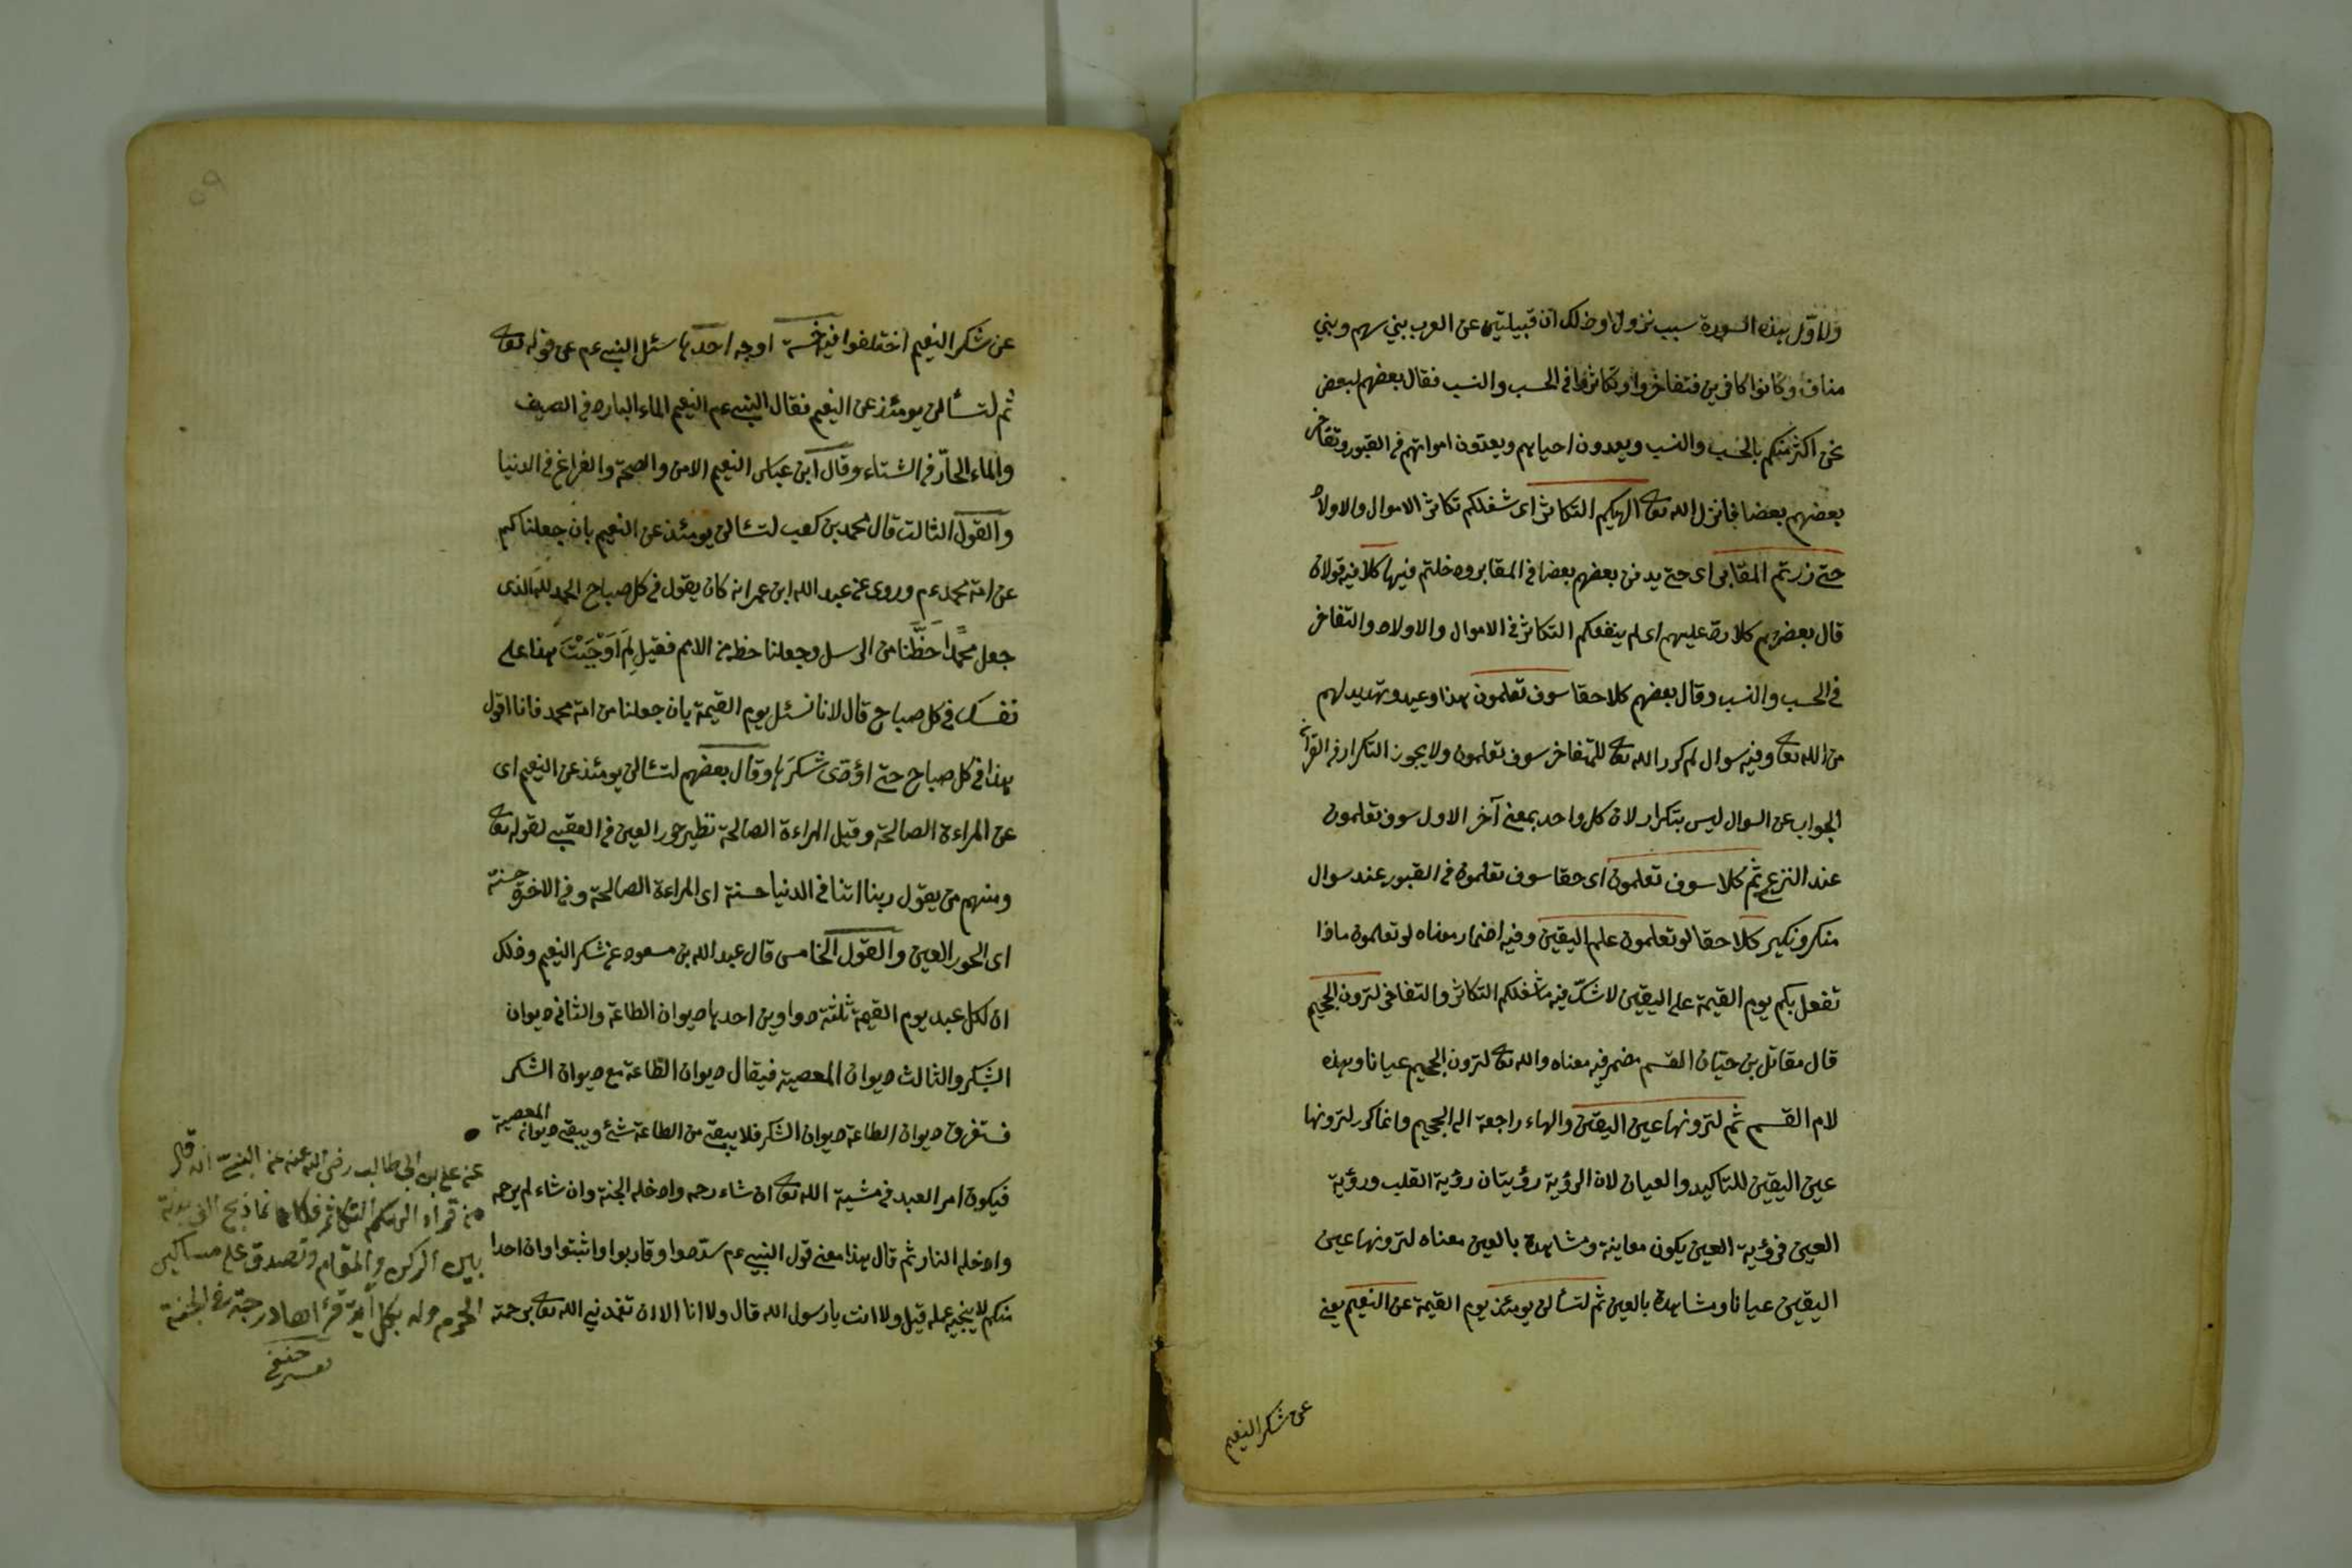 ولاوّل بهذه السورة سبب نزول وذلك ان قبيلتين عن العرب بني سهم وبني
مناف وكانوا كافرين فتفاخروا وتكاثروا في الحسب والنسب فقال بعضهم لبعض
نحن اكثر منكم بالحسب والنسب ويعدون احياهم ويعدون امواتهم في القبور وتفاخر
بعضهم بعضا فانزل الله تعالى الهيكم التكاثر اى شغلكم تكاثر الاموال والاولاد
حتى زرتم المقابر اى حتى يدفن بعضهم بعضا في المقابر ودخلتم فيها كلا فيه قولان
قال بعضهم كلا ردّ عليهم اى لم ينفعكم التكاثر في الاموال والاولاد والتفاخر
في الحسب والنسب وقال بعضهم كلا حقا سوف تعلمون هذا وعيد وتهديد لهم
من الله تعالى وفيه سوال لم كرر الله تعالى للتفاخر سوف تعلمون ولا يجوز التكرار في القرآن
الجواب عن السوال ليس بتكرار لان كل واحد بمعنى آخر الاول سوف تعلمون
عند النزع ثم كلا سوف تعلمون اى حقا سوف تعلمون في القبور عند سوال
منكر ونكير كلا حقا لو تعلمون علم اليقين وفيه اضمار معناه لو تعلمون ماذا
تفعل بكم يوم القيمة علم اليقين لا شكّ فيه ما شغلكم التكاثر والتفاخر لترون الجحيم
قال مقاتل بن حيّان القسم مضمر فيه معناه والله تعالى لترون الجحيم عيانا وهذه
لام القسم ثم لترونها عين اليقين والهاء راجعة الى الجحيم وانما كرر لترونها
عين اليقين للتاكيد والعيان لان الرؤية رؤيتان رؤية القلب ورؤية
العين فرؤية العين يكون معاينة ومشاهدة بالعين معناه لترونها عين
اليقين عيانا ومشاهدة بالعين ثم لتسألن يومئذ يوم القيمة عن النعيم يعني
عن شكر النعيم
عن شكر النعيم اختلفوا فيه خمسة اوجه احدها سئل النبي عم عن قوله تعالى
ثم لتسألن يومئذ عن النعيم فقال النبي عم النعيم الماء البارد في الصيف
والماء الحارّ في الشتاء وقال ابن عباس النعيم الامن والصحة والفراغ في الدنيا
والقول الثالث قال محمد بن كعب لتسألن يومئذ عن النعيم بان جعلناكم
عن امة محمد عم وروى عن عبد الله ابن عمر انه كان يقول في كل صباح الحمد لله الذى
جعل محمدًا حَظَّنا من الرسل وجعلنا حظه من الامم فقيل لِمَ اَوْجَبْتَ هذا على
نفسك في كل صباح قال لانا نسئل يوم القيمة بان جعلنا من امة محمد فانا اقول
بهذا في كل صباح حتى اؤدّى شكرَها وقال بعضهم لتسألن يومئذ عن النعيم اى
عن المراءة الصالحة وقيل المراءة الصالحة نظير حور العين في العقبى لقوله تعالى
ومنهم من يقول ربنا اتنا في الدنيا حسنة اى المراءة الصالحة وفي الاخرة حسنة
اى الحور العين والقول الخامس قال عبد الله بن مسعود عن شكر النعيم وذلك
ان لكل عبد يوم القيمة ثلثة دواوين احدها ديوان الطاعة والثاني ديوان
الشكر والثالث ديوان المعصية فيقال ديوان الطاعة مع ديوان الشكر
فستغرق ديوان الطاعة ديوان الشكر فلا يبقى من الطاعة شئ ويبقى ديوان المعصية
فيكون امر العبد في مشية الله تعالى ان شاء رحمه وادخله الجنة وان شاء لم يرحمه
وادخله النار ثم قال هذا معنى قول النبي عم سدّدوا وقاربوا واثبتوا وان احدا
منكم لا ينجيه عمله قيل ولا انت يا رسول الله قال ولا انا الا ان تغمدني الله تعالى برحمته
عن علي بن ابى طالب رضى الله عنه عن النبي انه قال
من قراء الهيكم التكاثر فكانما ذبح الف بدنة
بين الركن والمقام وتصدق على مساكين
الحرم وله بكل آية قرأها درجة في الجنة
تفسير حنفى